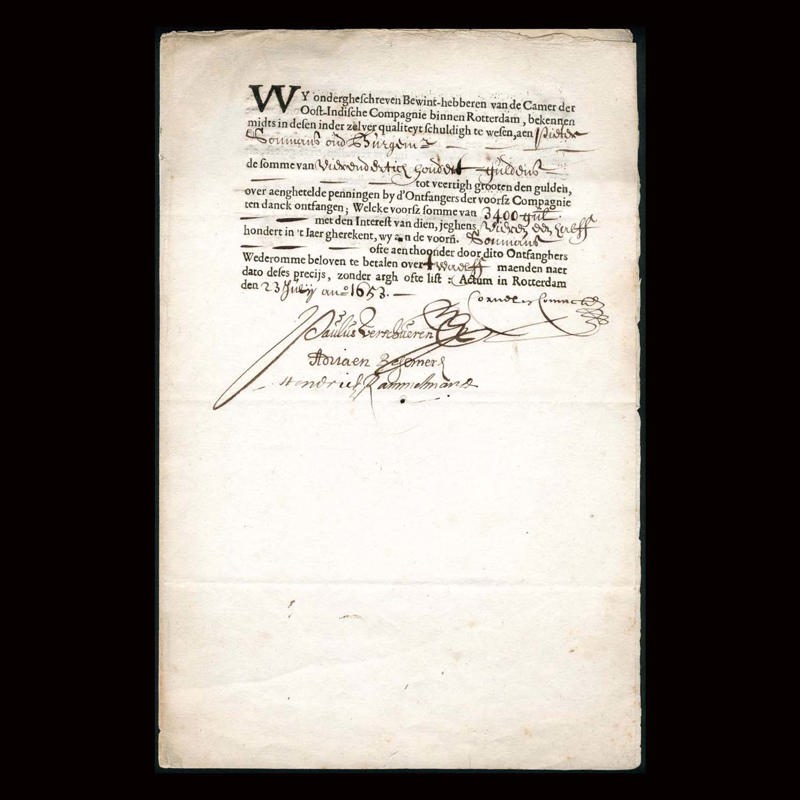 WY ondergheschreven Bewint-hebberen van de Camer der
Oost-Indische Compagnie binnen Rotterdam, bekennen
midts in desen inder zelver qualiteyt schuldigh te wesen, aen Pieter
Soumans oud Burgemr
de somme van vierendertich hondert guldens
tot veertigh grooten den gulden,
over aenghetelde penningen by d'Ontfangers der voorsz Compagnie
ten danck ontfangen; Welcke voorsz somme van 3400 gul
met den Interest van dien, jeghens vier en een halff
hondert in 't Iaer gherekent, wy aen de voorñ. Soumans
ofte aen thoonder door dito Ontfanghers
Wederomme beloven te betalen over twaelff maenden naer
dato deses precijs, zonder argh ofte list : Actum in Rotterdam
den 23 Julij ano 1653.
Paulus Verschueren
Adriaen Besemer
Hendrick